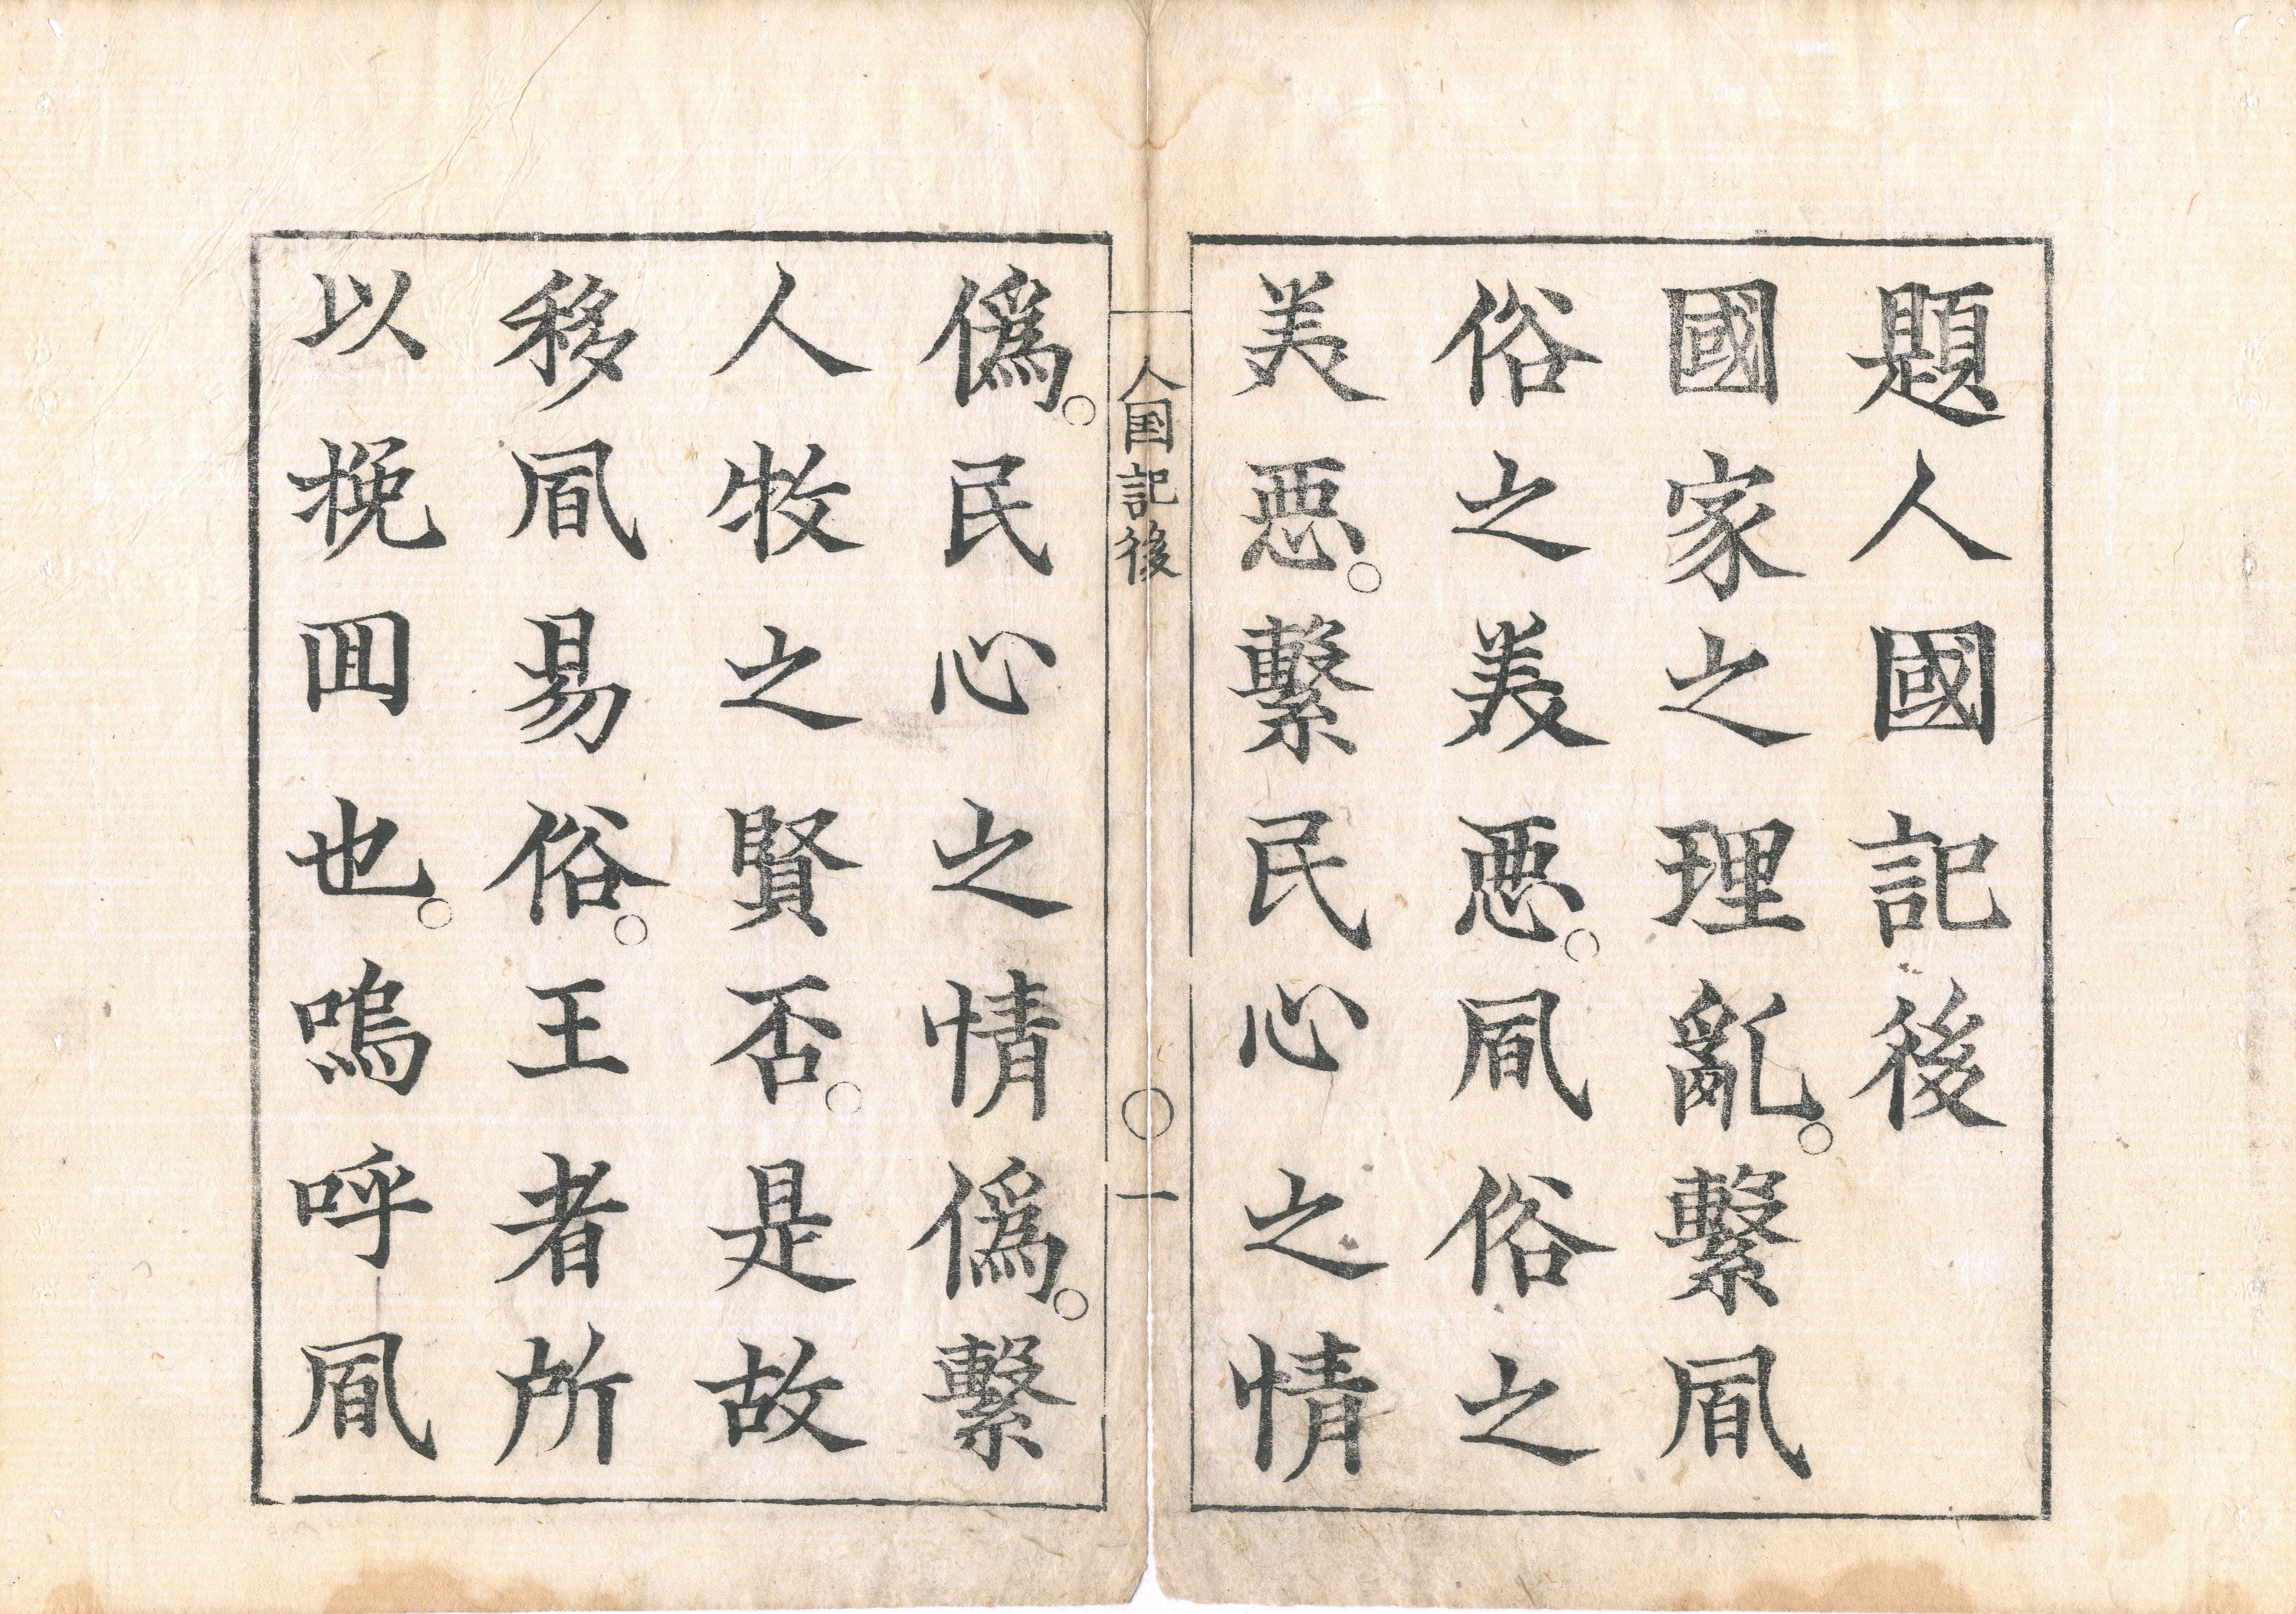 題人國記後
國家之理亂。繫風
俗之美惡。風俗之
美惡。繫民心之情
人国記後
〇
一
僞。民心之情僞。繫
人牧之賢否。是故
移風易俗。王者所
以挽回也。嗚呼風